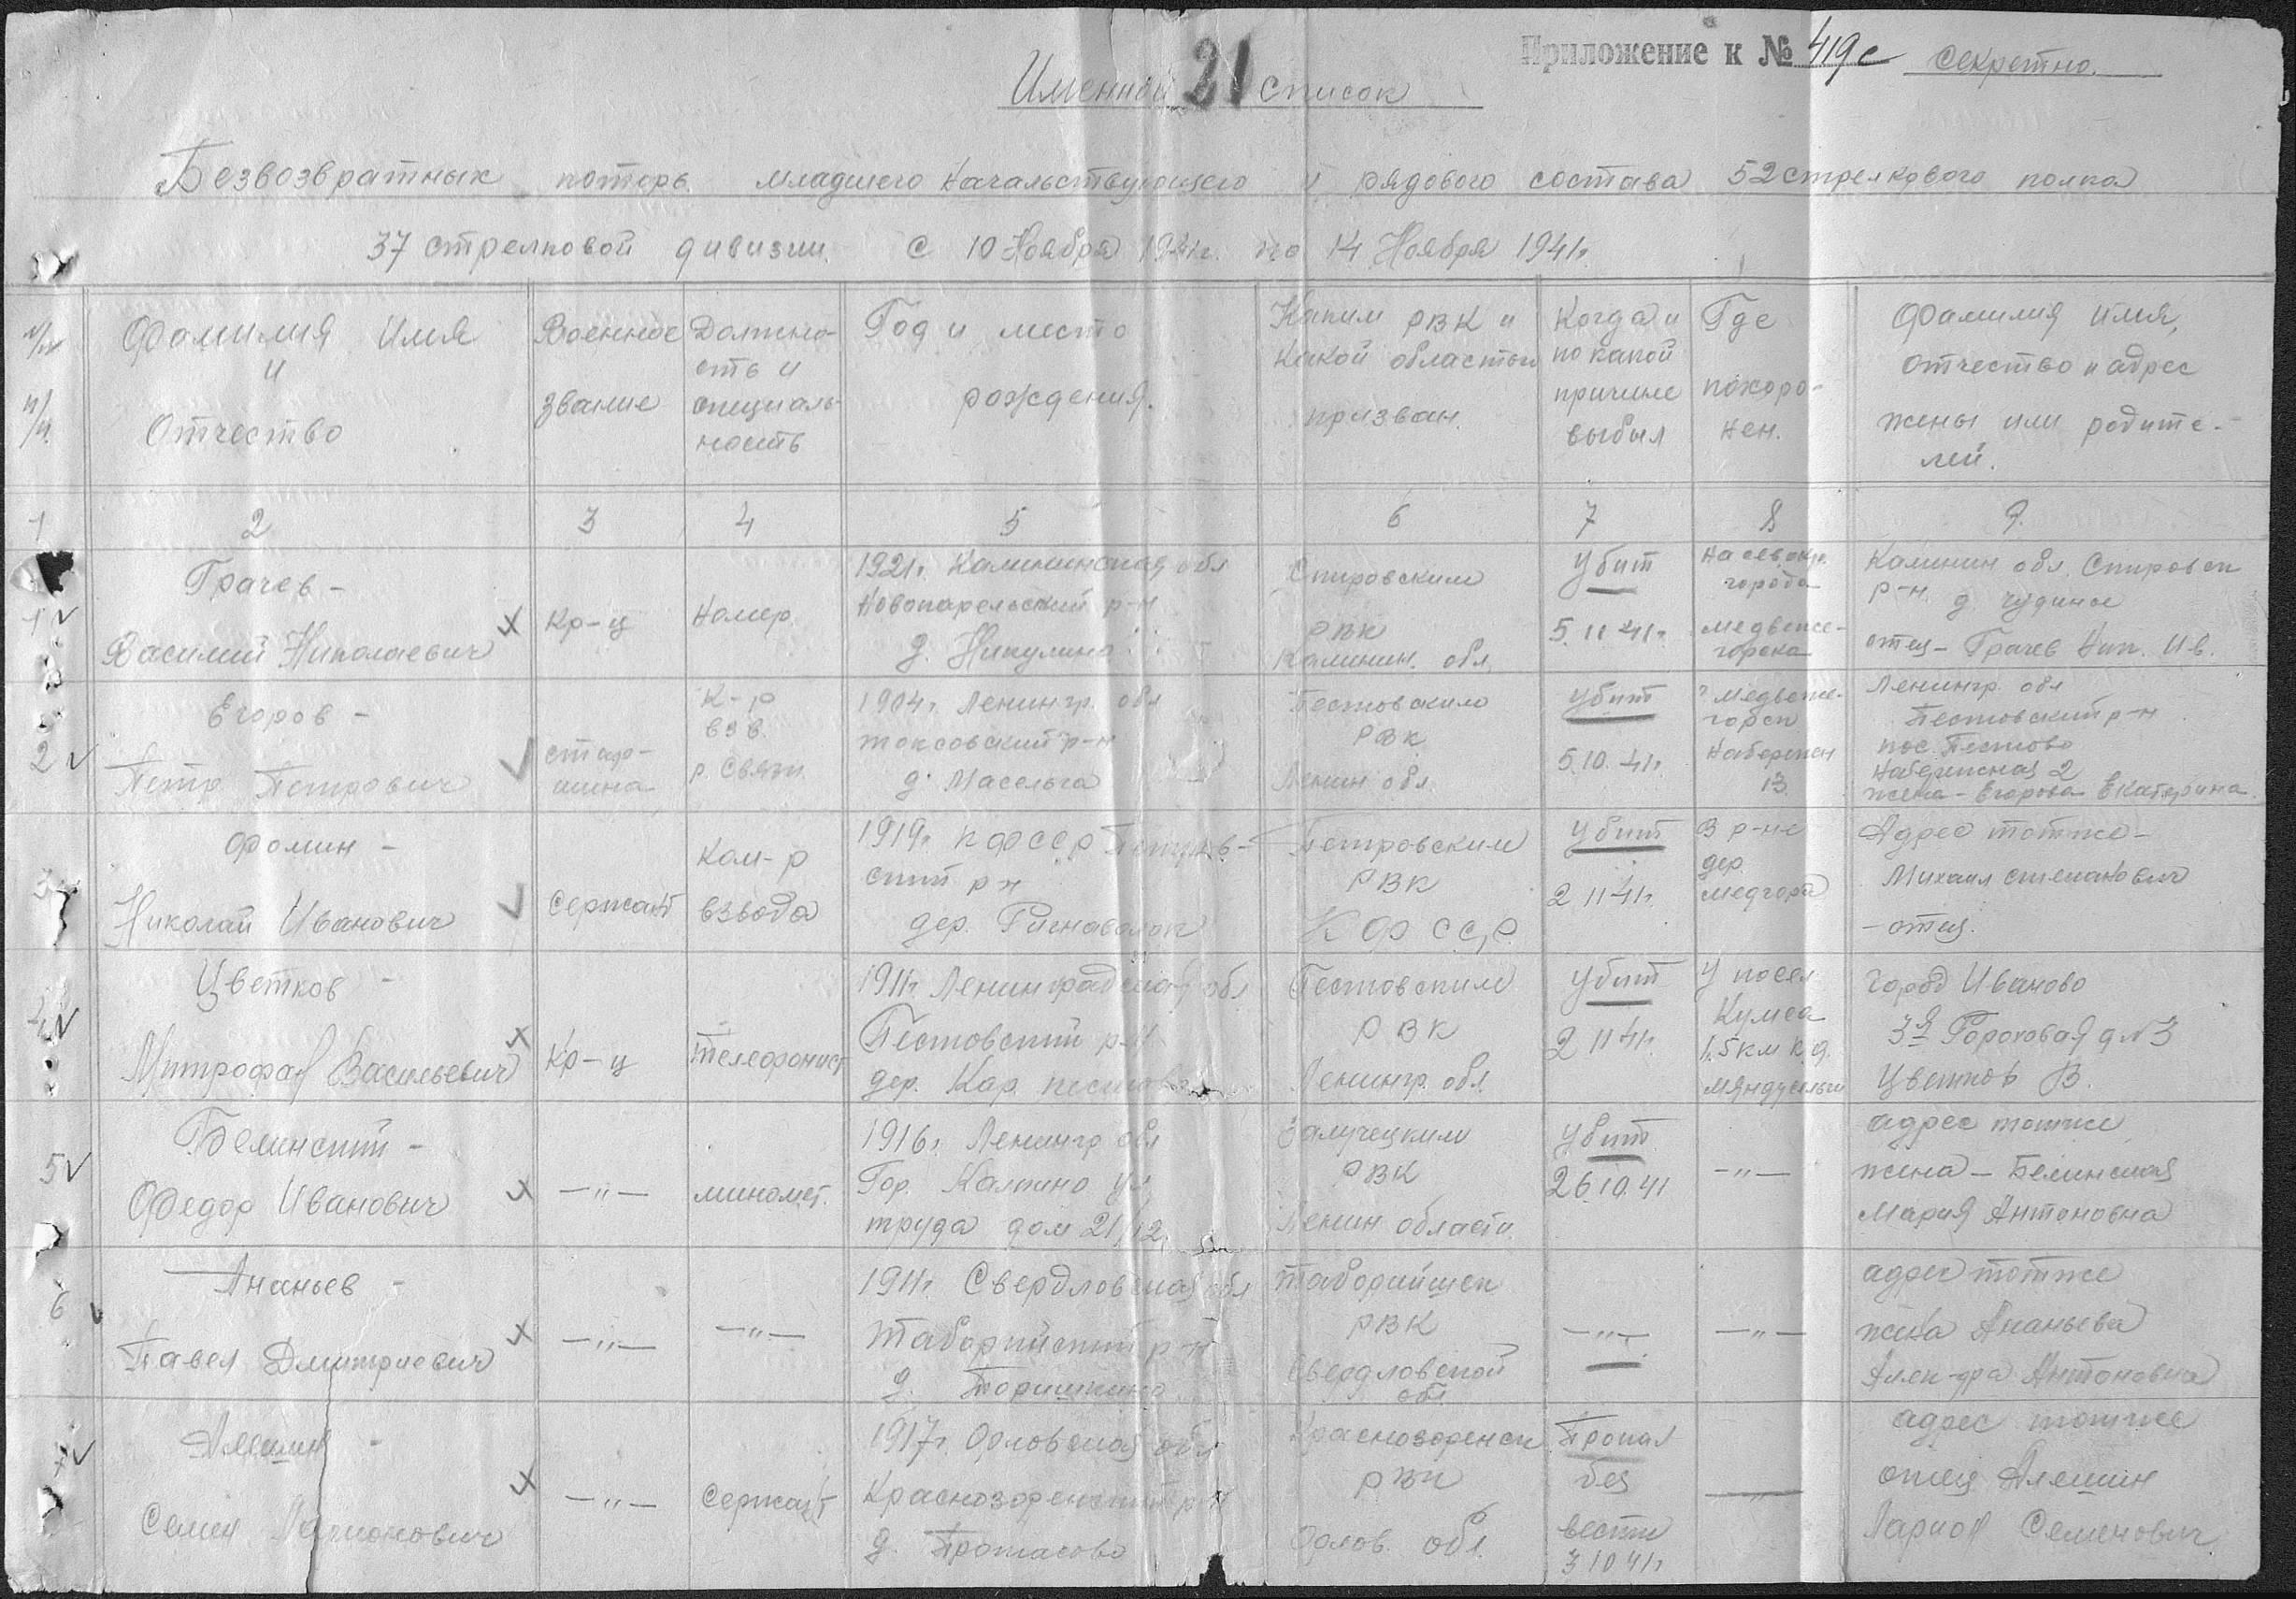 Приложение к № 419с секретно.
21
Именной список
Безвозвратных потерь младшего начальствующего и рядового состава 52 стрелкового полка
37 стрелковой дивизии. С 10 Ноября 1941г. по 14 Ноября 1941г.
Фамилия Имя
и
Отчество
Военное
звание
Должно-
сть и
специаль-
ность
Год и место
рождения.
Каким РВК и
какой областью
призван.
Когда и
по какой
причине
выбыл
Где
похоро-
нен.
Фамилия имя,
отчество и адрес
жены или родите-
лей.
1 2 3 4 5 6 7 8 9.
1
Грачев -
Василий Николаевич
Кр-ц
Номер.
1921г. Калининская обл
Новокарельский р-н
д. Никулино
Спировским
РВК
Калинин. обл.
Убит
5.11 41г.
На сев.окр.
города
Медвеже-
горска
Калинин обл. Спировск
р-н. д.
отец - Грачев Ник. Ив.
2
Егоров -
Петр Петрович
стар-
шина
К-р
взв.
р. связи.
1904г. Ленингр. обл
токсовский р-н
д. Масельга
Пестовским
РВК
Ленин обл.
Убит
5.10.41г.
г Медвеже-
горск
Набережн
13
Ленингр. обл
Пестовский р-н
пос. Пестово
Набережная 2
жена - Егорова Екатерина
3
Фомин -
Николай Иванович
Сержант
Ком-р
взвода
1919г. К ФССР Петров-
ский р н
дер.
Петровским
РВК
К Ф ССР.
Убит
2 11 41г.
В р-не
дер.
медгора
Адрес тотже -
Михаил степанович
- отец.
4
Цветков -
Митрофан Васильевич
Кр-ц
телефонист
1911г. Ленинградская обл
Пестовский р-н
дер. Кар. пестово
Пестовским
РВК
Ленингр. обл.
Убит
2 11 41г.
У посел
Кумса
1,5 км к д.
мяндусельги
город Иваново
3я Гороховая д №3
Цветков В.
5
Белинский -
Федор Иванович
— " —
миномет.
1916г. Ленингр обл
Гор. Колпино ул
труда дом 21/12.
Залучецким
РВК
Ленин области
Убит
26.10.41
— " —
адрес тотже
жена - Белинская
Мария Антоновна
6
Ананьев -
Павел Дмитриевич
— " —
— " —
1911г. Свердловская обл
Таборинский р-н
д.
РВК
Свердловской
обл
— " —
— " —
адрес тотже
жена Ананьева
Алек-дра Антоновна
7
Алешин -
Семен Ларионович
— " —
Сержант
1917г. Орловская обл
Краснозоренский р-н
д. Протасово
Краснозоренск
РВК
Орлов. обл.
Пропал
без
вести
3 10 41г
адрес тотже
отец Алешин
Ларион Семенович.